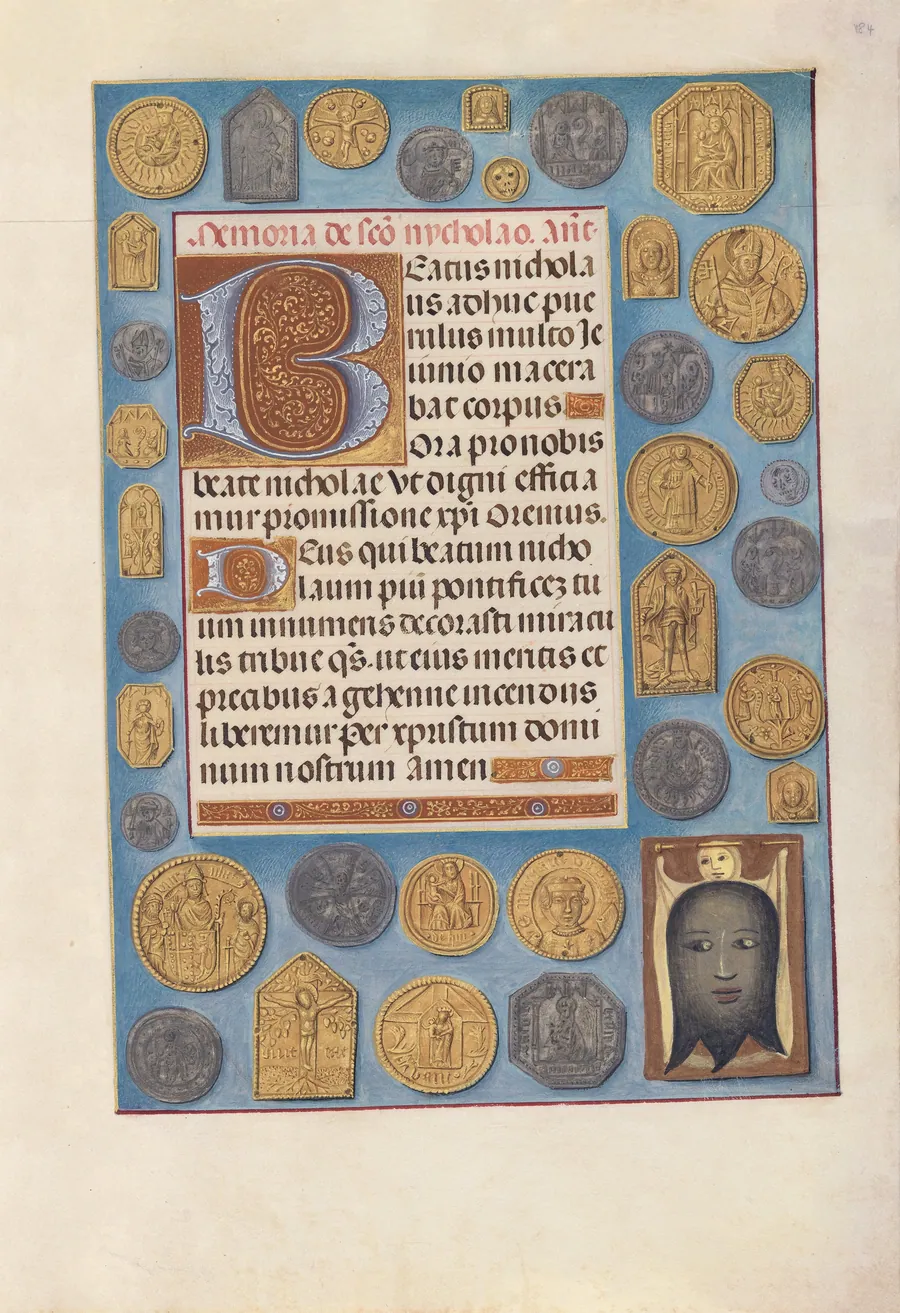 184
Memoria de scõ nycholao. Añt.
BEatus nichola
us adhuc pue
rulus multo Je
iunio macera
bat corpus.
Ora pro nobis
beate nicholae Vt digni efficia
mur promissione xp̄i Oremus.
DEus qui beatum nicho
laum piũ pontificez tu
um innumeris decorasti miracu
lis tribue q̃s. ut eius meritis et
precabus a gehenne incendiis
liberemur Per xpristum domi
num nostrum Amen